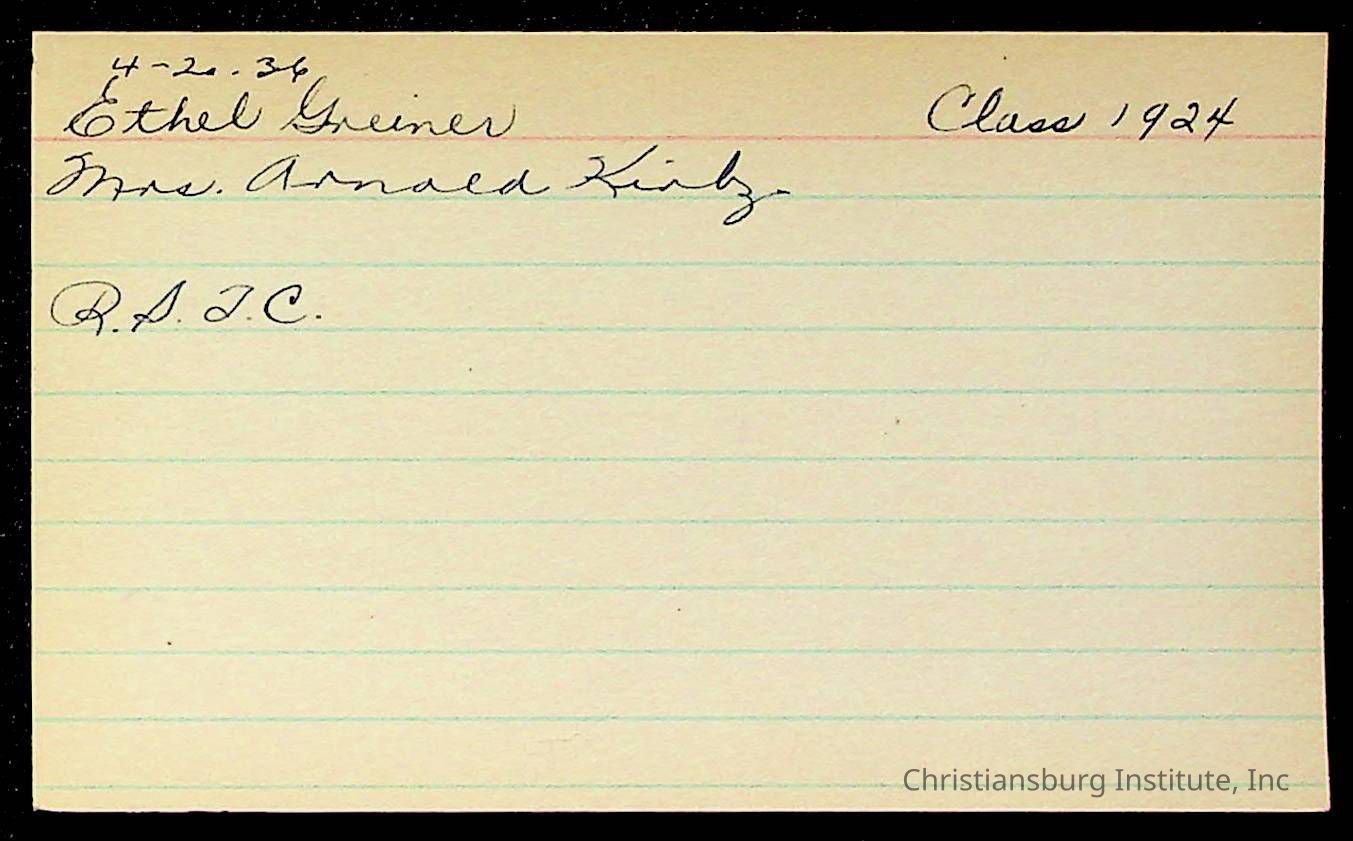 4-20-36
Ethel Greiner Class 1924
Mrs. Arnold Kirby.
R.S.T.C.
Christiansburg Institute, Inc